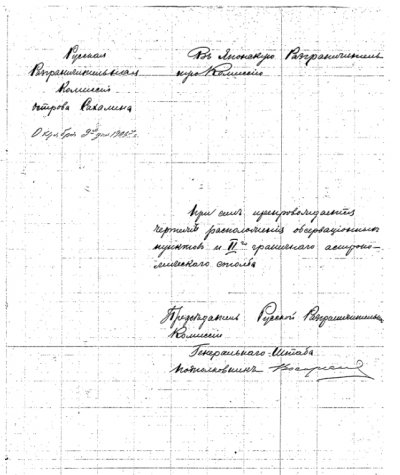 Русская
Разграничительная
Комиссія
острова Сахалина
Октября 9го дня 1907 г.
Въ Японскую Разграничитель
ную Комиссію
При семъ препровождается
чертежъ расположенія обсерваціонныхъ
пунктовъ и II го граничнаго астроно-
мическаго столба
Предсѣдатель Русской Разграничительной
Комиссіи
Генеральнаго Штаба
Подполковникъ